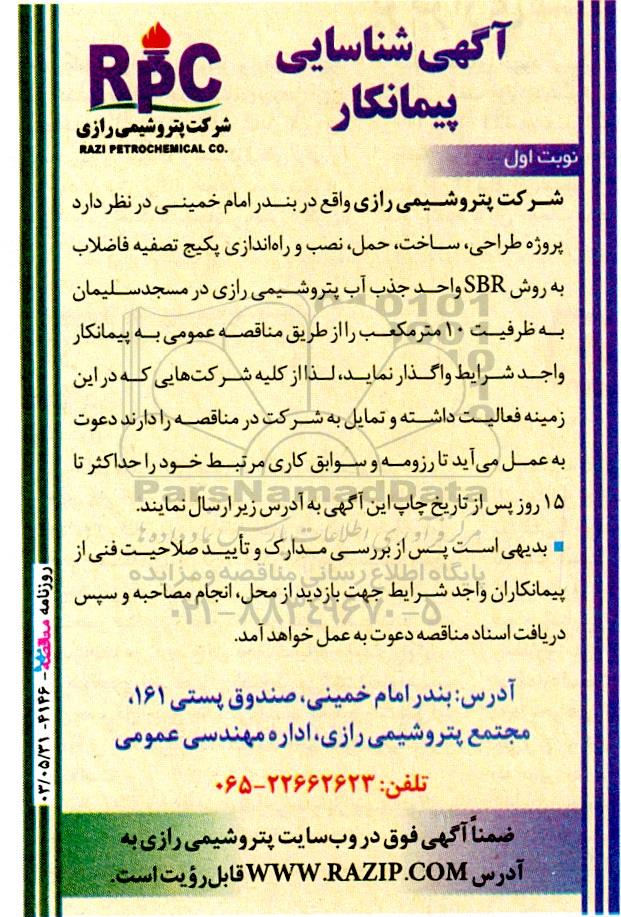 آگهی شناسایی
پیمانکار
RPC
شرکت پتروشیمی رازی
RAZI PETROCHEMICAL CO.
نوبت اول
شرکت پتروشیمی رازی واقع در بندر امام خمینی در نظر دارد
پروژه طراحی، ساخت، حمل، نصب و راه‌اندازی پکیج تصفیه فاضلاب
به روش SBR واحد جذب آب پتروشیمی رازی در مسجدسلیمان
به ظرفیت ۱۰ مترمکعب را از طریق مناقصه عمومی به پیمانکار
واجد شرایط واگذار نماید، لذا از کلیه شرکت‌هایی که در این
زمینه فعالیت داشته و تمایل به شرکت در مناقصه را دارند دعوت
به عمل می‌آید تا رزومه و سوابق کاری مرتبط خود را حداکثر تا
۱۵ روز پس از تاریخ چاپ این آگهی به آدرس زیر ارسال نمایند.
■ بدیهی است پس از بررسی مدارک و تأیید صلاحیت فنی از
پیمانکاران واجد شرایط جهت بازدید از محل، انجام مصاحبه و سپس
دریافت اسناد مناقصه دعوت به عمل خواهد آمد.
آدرس: بندر امام خمینی، صندوق پستی ۱۶۱،
مجتمع پتروشیمی رازی، اداره مهندسی عمومی
تلفن: ۲۲۶۶۲۶۲۳-۰۶۵
ضمناً آگهی فوق در وب‌سایت پتروشیمی رازی به
آدرس WWW.RAZIP.COM قابل رؤیت است.
روزنامه مناقصه - ۴۱۴۶ - ۰۳/۰۵/۳۱
ParsNamadData
مرکز فرآوری اطلاعات پارس نماد داده ها
پایگاه اطلاع رسانی مناقصه و مزایده
۰۲۱-۸۸۳۴۹۶۷۰-۵